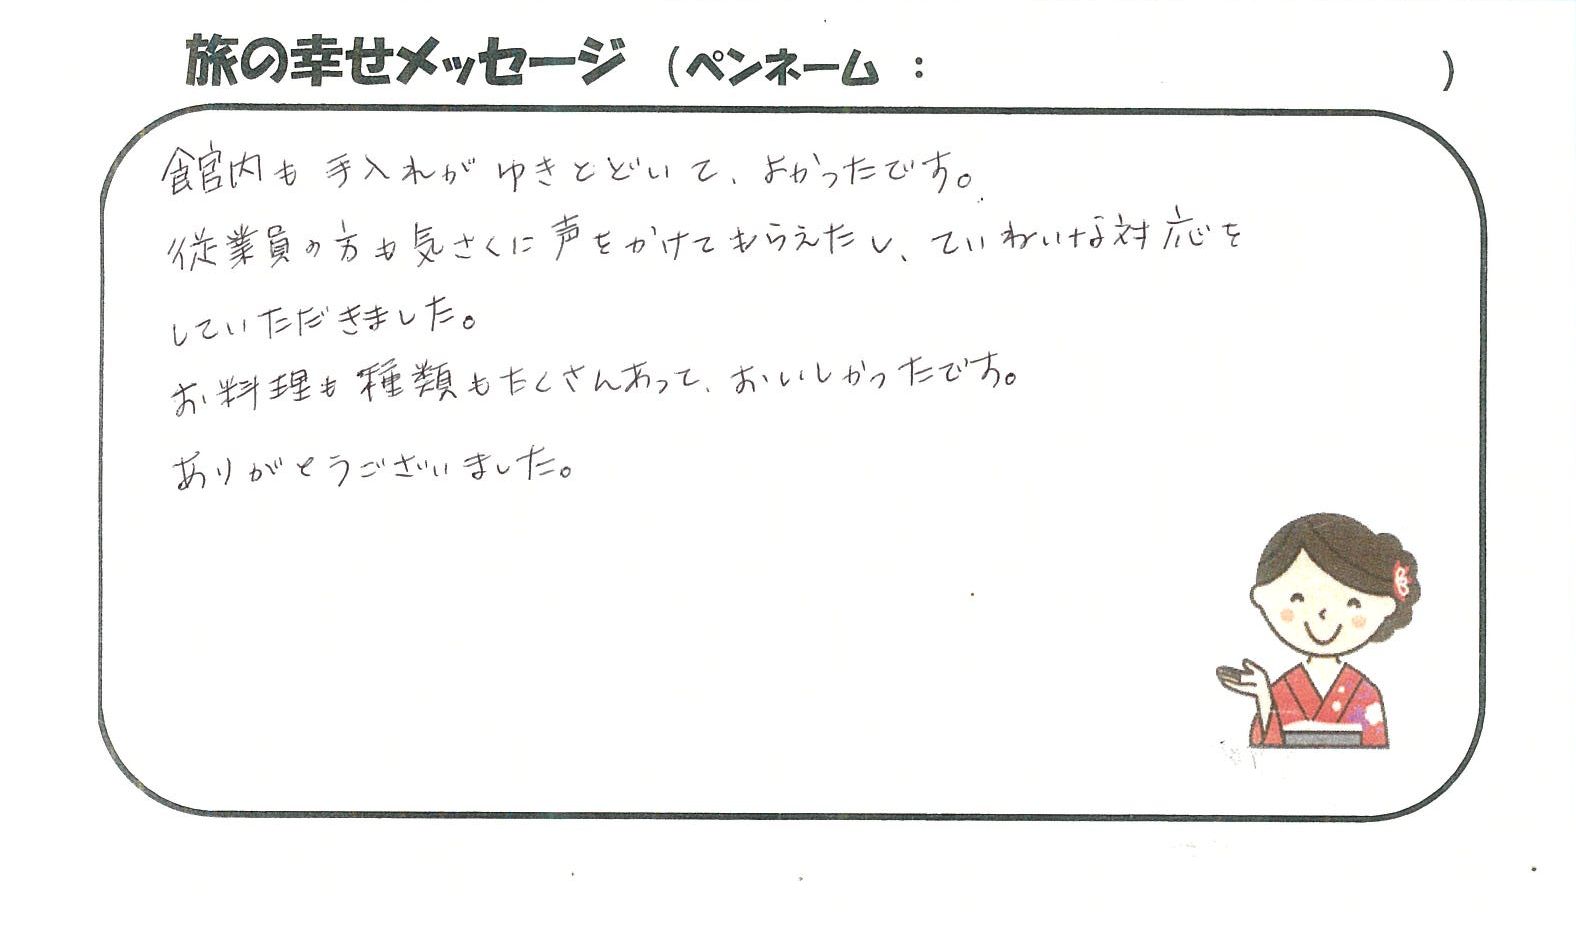 旅の幸せメッセージ （ペンネーム ： ）
館内も手入れがゆきとどいて、よかったです。
従業員の方も気さくに声をかけてもらえたし、ていねいな対応を
していただきました。
お料理も種類もたくさんあって、おいしかったです。
ありがとうございました。